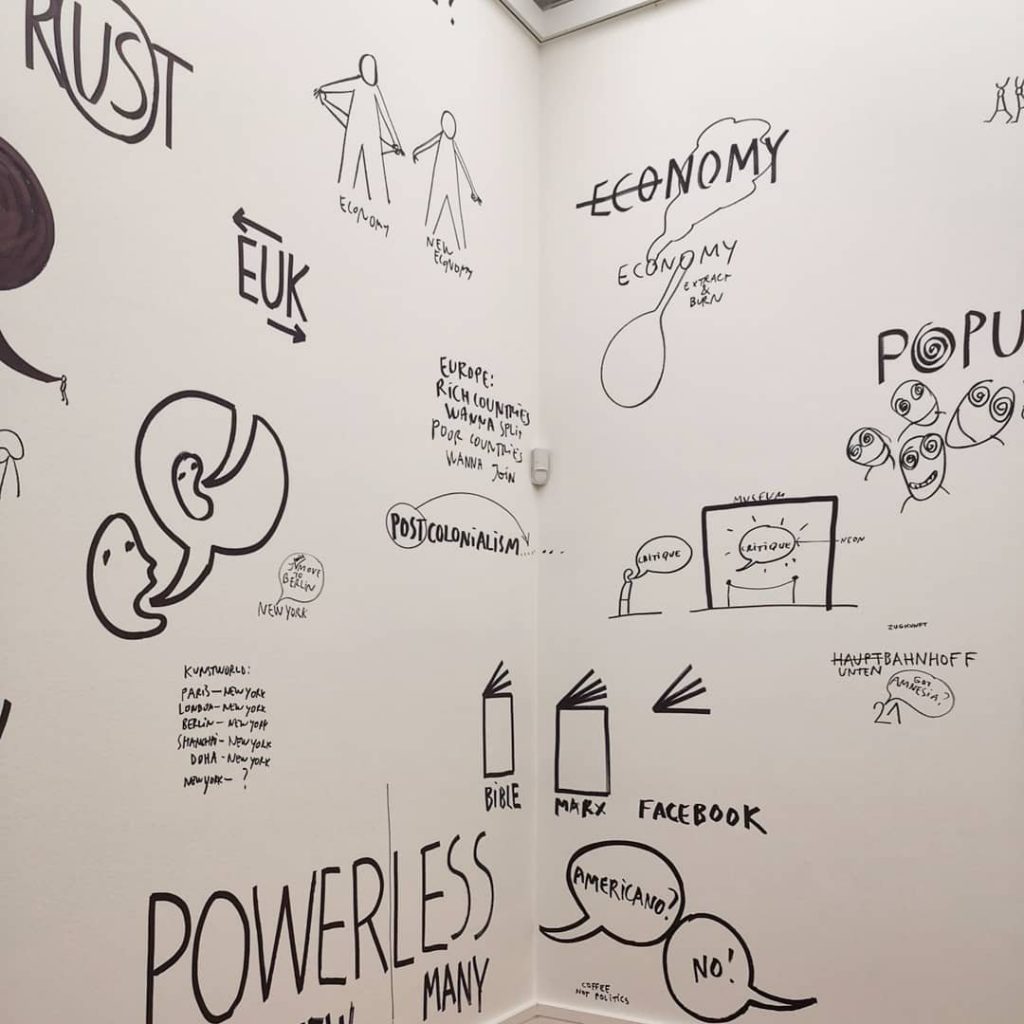 RUST
ECONOMY
NEW
ECONOMY
EUK
EUROPE:
RICH COUNTRIES
WANNA SPLIT
POOR COUNTRIES
WANNA JOIN
POSTCOLONIALISM....
MOVE
TO
BERLIN
NEW YORK
KUNSTWORLD:
PARIS – NEW YORK
LONDON – NEW YORK
BERLIN – NEW YORK
SHANGHAI – NEW YORK
DOHA – NEW YORK
NEW YORK – ?
POWERLESS
MANY
ECONOMY
ECONOMY
EXTRACT
&
BURN
POPU
MUSEUM
CRITIQUE
CRITIQUE
NEON
ZUGKUNFT
HAUPTBAHNHOFF
UNTEN
GOT
AMNESIA?
21
BIBLE
MARX
FACEBOOK
AMERICANO?
NO!
COFFEE
NOT POLITICS